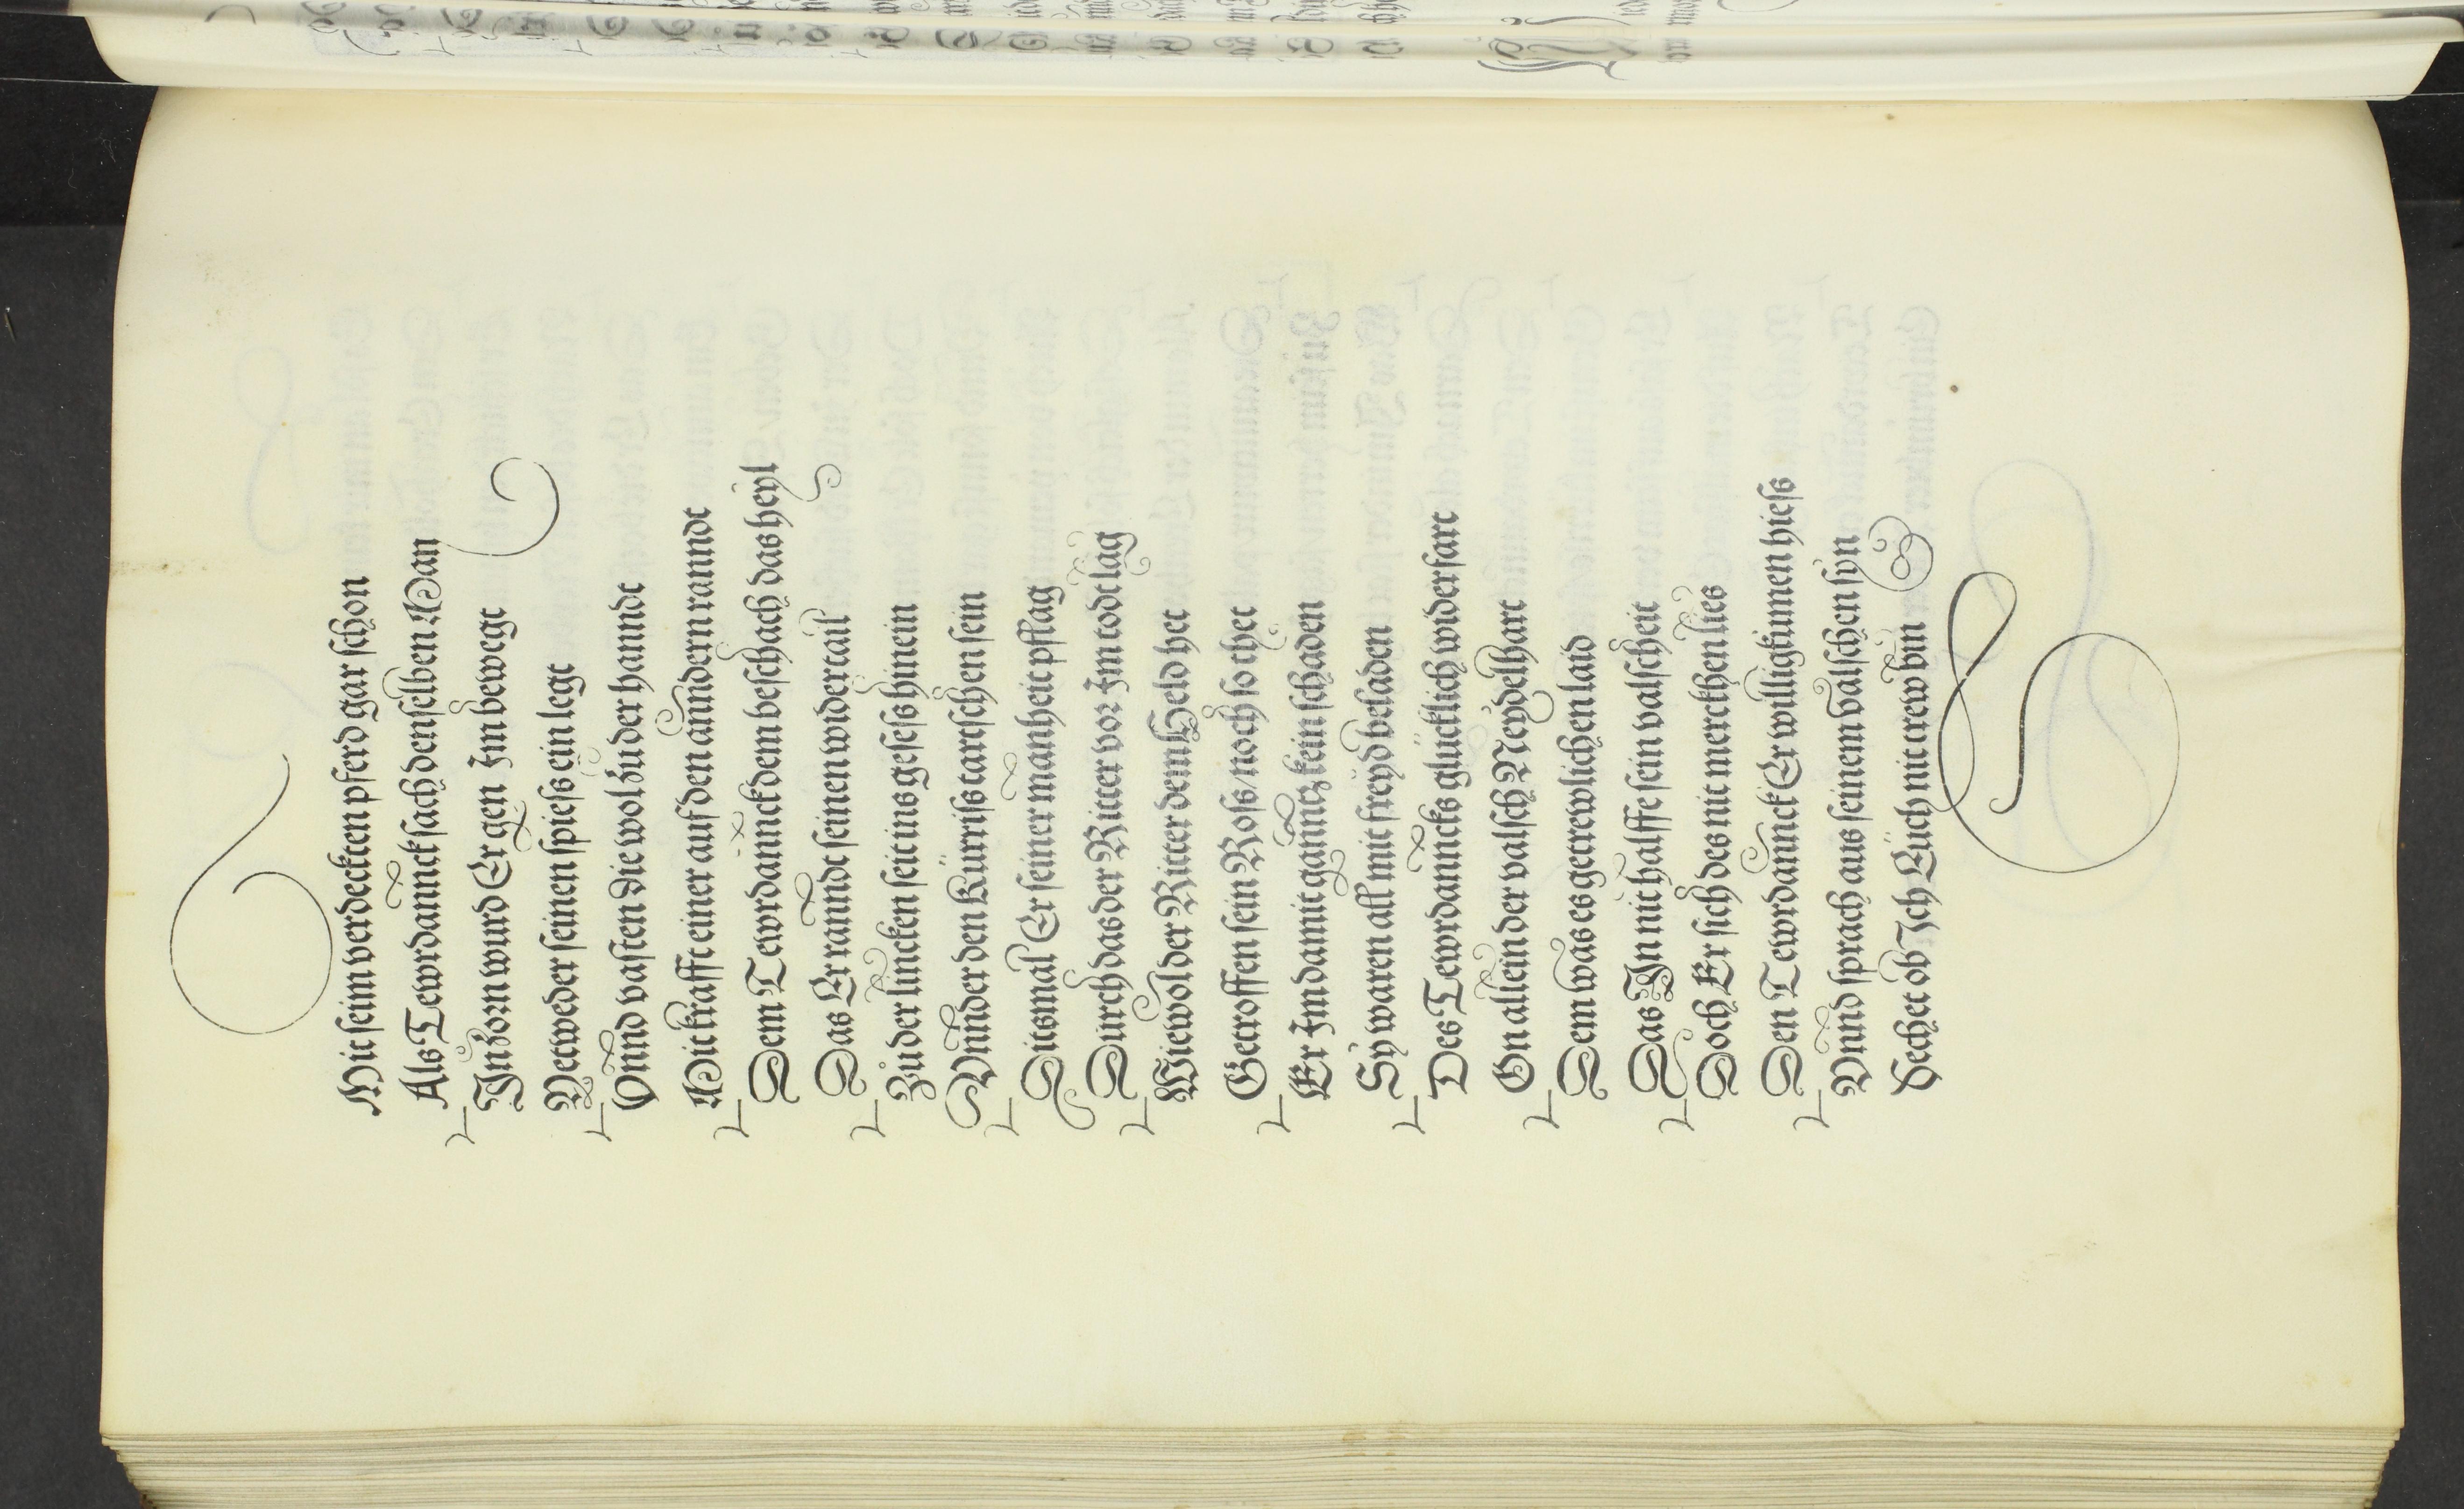 Mit seim verdeckten pferd gar schon
Als Tewrdannck sach denselben Man
In zorn wurd Er gen Im bewegt
Yetweder seinen spiess ein legt
Vnnd vasten die wol zu der hanndt
Mit krafft einer auf den anndern ranndt
Dem Tewrdannck dem beschach das heyl
Das Er ranndt seinen widertail
Zů der lincken seit ins gesess hinein
Vnnder den Kürriss tartschen sein
Ditsmal Er seiner manheit pflag
Durch das der Ritter vor Im todt lag
Wiewol der Ritter dem Held het
Getroffen sein Ross / noch so thet
Er Im damit ganntz kein schaden
Sy waren all mit freyd beladen
Des Tewrdanncks glücklich widerfart
On allein der valsch Neydelhart
Dem was es getrewlichen laid
Das In nit halffe sein valscheit
Doch Er sich des nit merckhen lies
Den Tewrdannck Er willigkumen hiess
Vnnd sprach aus seinem valschen syn
Sechet ob Ich Euch nit trew bin